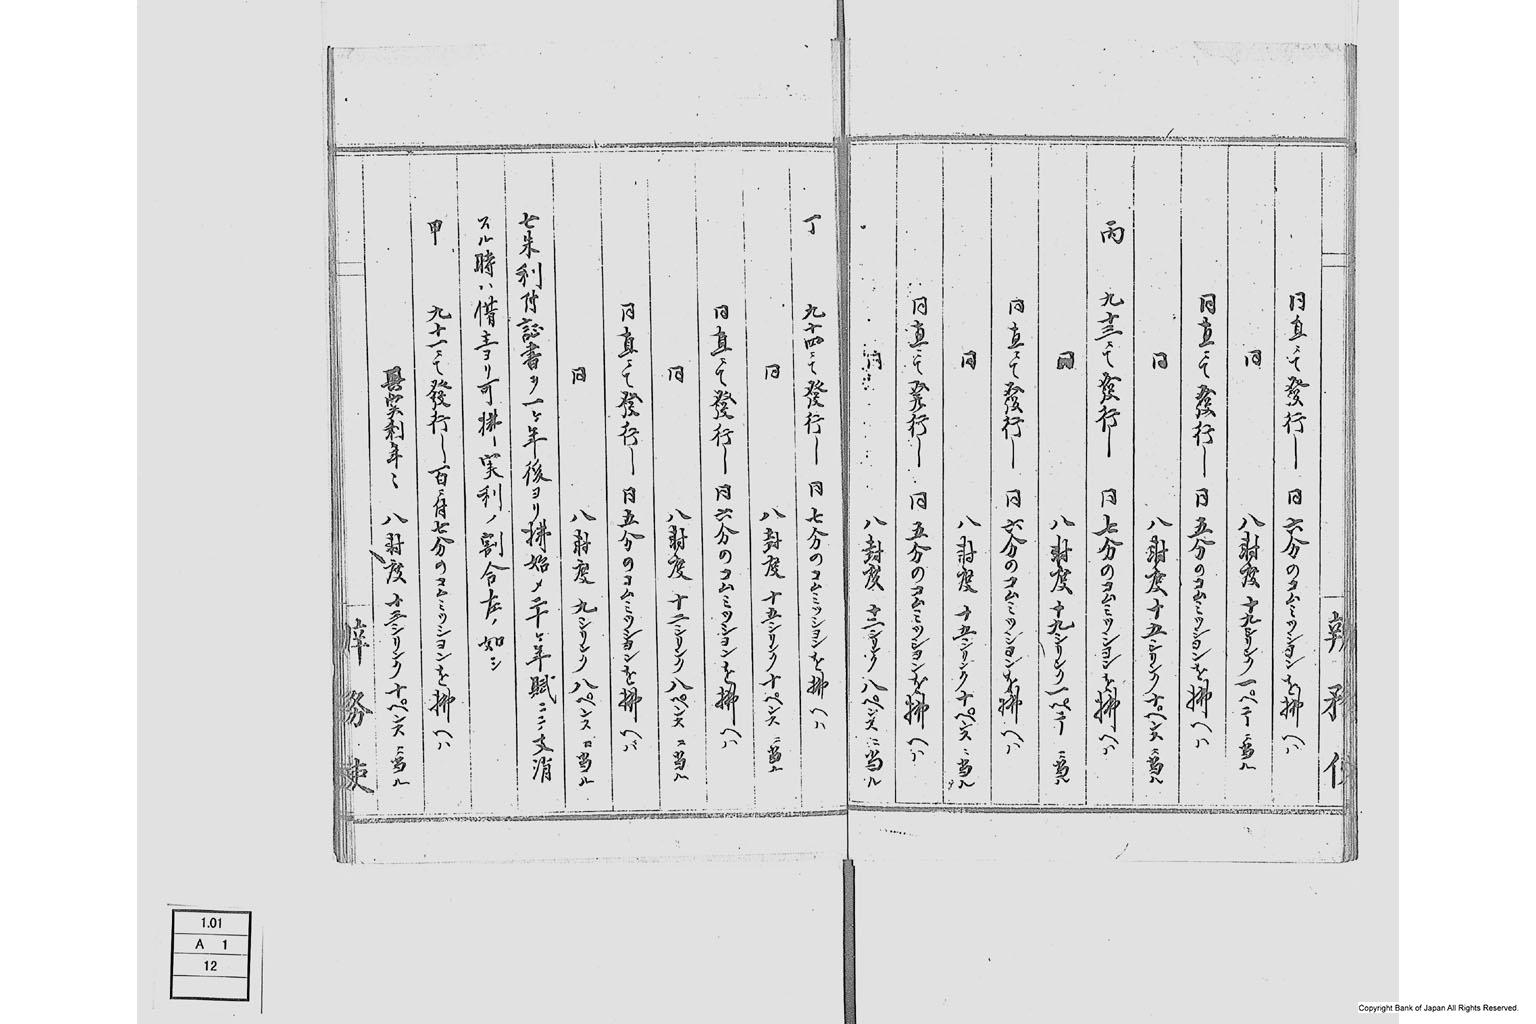 同直ニて發行し 同六分のコムミッシヨンを拂ヘハ
同 八封度十九シリンク一ペニー ニ当ル
同直ニて發行し 同五分のコムミッシヨンを拂ヘハ
同 八封度十五シリンク十ペンス ニ当ル
丙 九十三ニて發行し 同七分のコムミッシヨンを拂ヘハ
同 八封度十九シリンク一ペニー ニ当ル
同直ニて發行し 同六分のコムミッシヨンを拂ヘハ
同 八封度十五シリンク十ペンス ニ当ル
同直ニて發行し 同五分のコムミッシヨンを拂ヘハ
同 八封度十二シリンク八ペンス ニ当ル
丁 九十四ニて發行し 同七分のコムミッシヨンを拂ヘハ
同 八封度十五シリンク十ペンス ニ当ル
同直ニて發行し 同六分のコムミッシヨンを拂ヘハ
同 八封度十二シリンク八ペンス ニ当ル
同直ニて發行し 同五分のコムミッシヨンを拂ヘハ
同 八封度九シリンク八ペンス ニ当ル
七朱利付證書ヲ一ヶ年後ヨリ拂始メ二十ヶ年賦ニシテ支消
スル時ハ借主ヨリ可拂ノ実利ノ割合左ノ如シ
甲 九十一ニて發行し百ニ付七分のコムミッシヨンを拂ヘハ
其実利年ニ 八封度十三シリンク十ペンス ニ当ル
務
1.01
A 1
12
Copyright Bank of Japan All Rights Reserved.